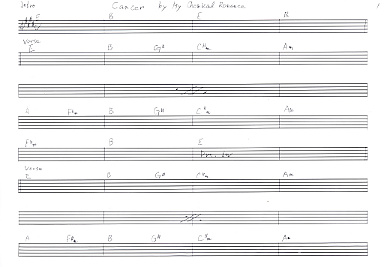 Intro Cancer by My Chemical Romance 1
E B E B
Verse
E B G# C#m Am
A F#m B G# C#m Am
F#m B E
Verse
E B G# C#m Am
A F#m B G# C#m A